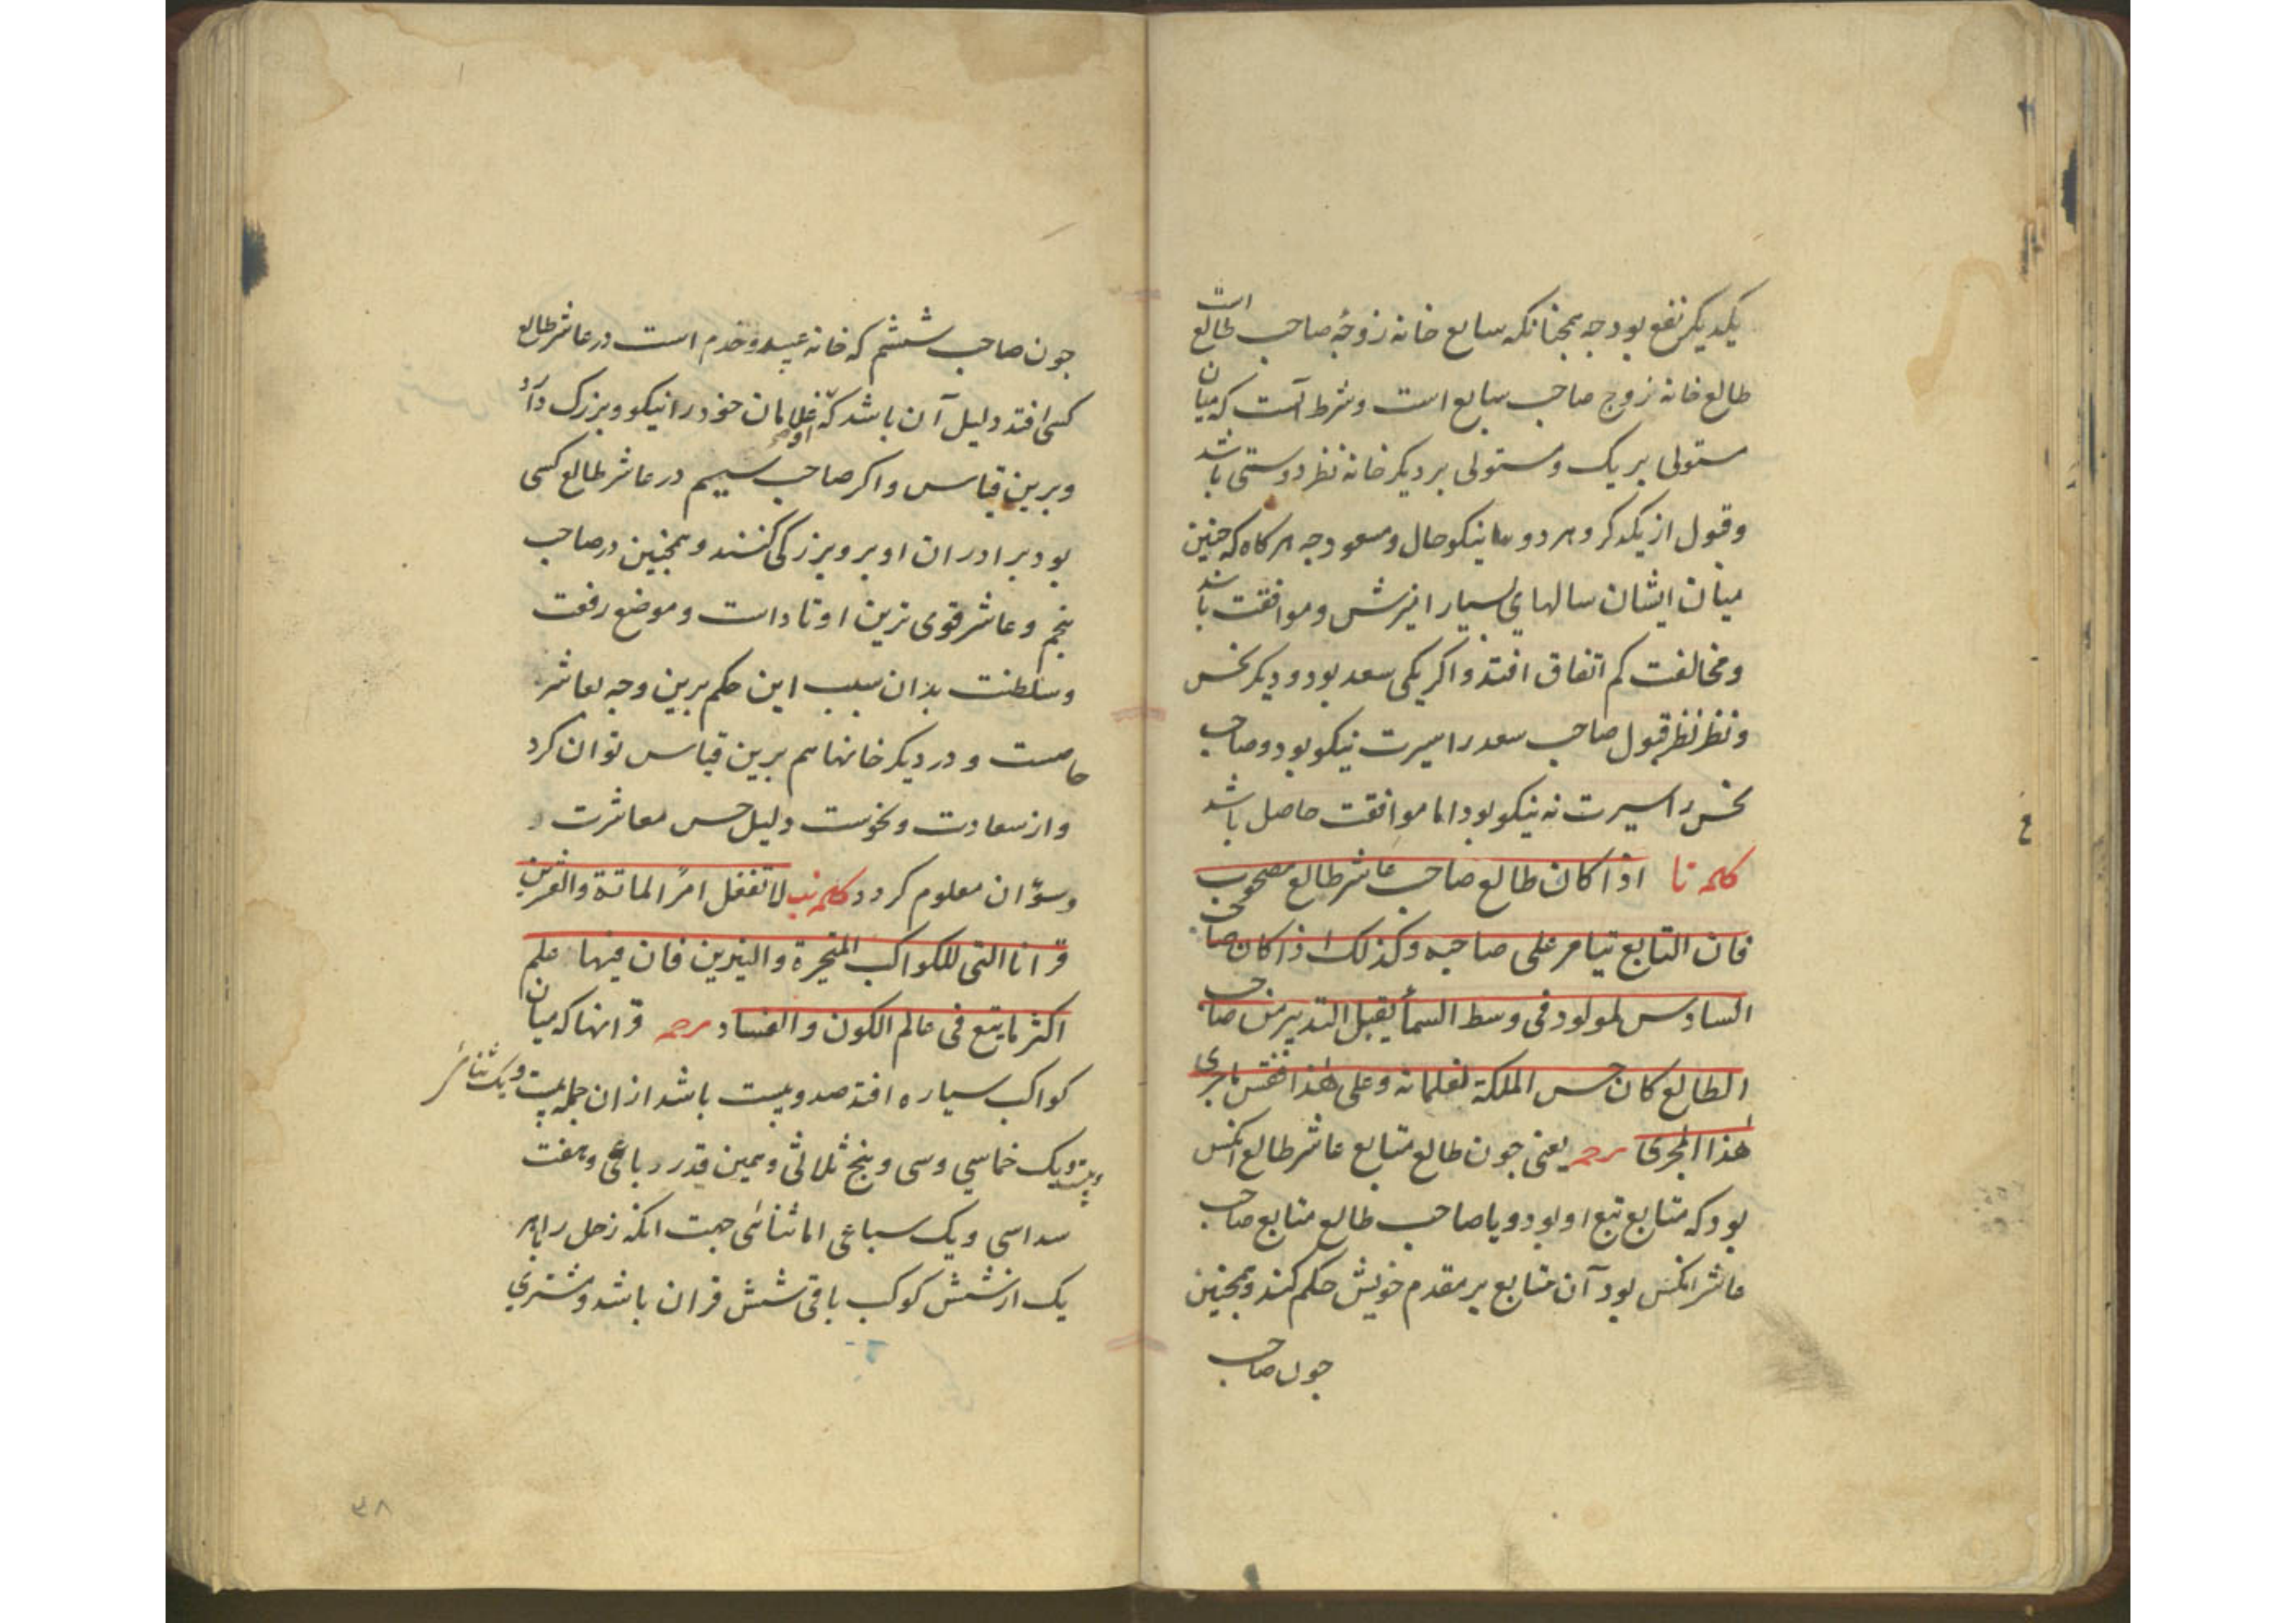 یکدیکر نفع بود جه همجنانکه سابع خانه زوجۀ صاحب طالع است
طالع خانه زوج صاحب سابع است و شرط آنست که میان
مستولی بر یک و مستولی بر دیکر خانه نظر دوستی باشد
و قبول از یکدکر و هر دو نیکوحال و مسعود جه هرکاه که جنین
میان ایشان سالهای بسیار امیزش و موافقت باشد
و مخالفت کم اتفاق افتد و اکر یکی سعد بود و دیکر نحس
و نظر نظر قبول صاحب سعد را سیرت نیکو بود و صاحب
نحس را سیرت نه نیکو بود اما موافقت حاصل باشد
کلمه نا اذا کان طالع صاحب عاشر طالع مصحوب
فان التابع یتامر علی صاحبه و کذلک اذا کان صاحب
السادس لمولود فی وسط السمأ یقبل التدبیر من صاحب
الطالع کان حسن الملکة لغلمانه و علی هذا فقس ماجری
هذا المجری ترجمه یعنی جون طالع متابع عاشر طالع انکس
بود که متابع تبع او بود و یا صاحب طالع متابع صاحب
عاشر انکس بود آن متابع بر مقدم خویش حکم کند و همجنین
جون صاحب
جون صاحب ششم که خانه عبید و خدم است در عاشر طالع
کسی افتد دلیل آن باشد که او غلامان خود را نیکو و بزرک دارد
و برین قیاس و اکر صاحب سیم در عاشر طالع کسی
بود برادران او برو بزرکی کنند و همجنین در صاحب
پنجم و عاشر قوی ترین اوتاد است و موضع رفعت
و سلطنت بدان سبب این حکم برین وجه بعاشر
خاصست و در دیکر خانها هم برین قیاس توان کرد
و از سعادت و نحوست دلیل حسن معاشرت و
و سوّ ان معلوم کردد کلمه نب لا تغفل امر المائة والعشرین
قرانا التی للکواکب المتحیرة والنیرین فان فیها علم
اکثر ما یقع فی عالم الکون والفساد ترجمه قرانها که میان
کواکب سیاره افتد صد و بیست باشد ازان جمله بیست و یک ثنائی
و بیست و یک خماسی و سی و پنج ثلاثی و همین قدر رباعی و هفت
سداسی و یک سباعی اما ثنائی جهت انکه زحل را بهر
یک از شش کوکب باقی شش قران باشد و مشتری
۳۸